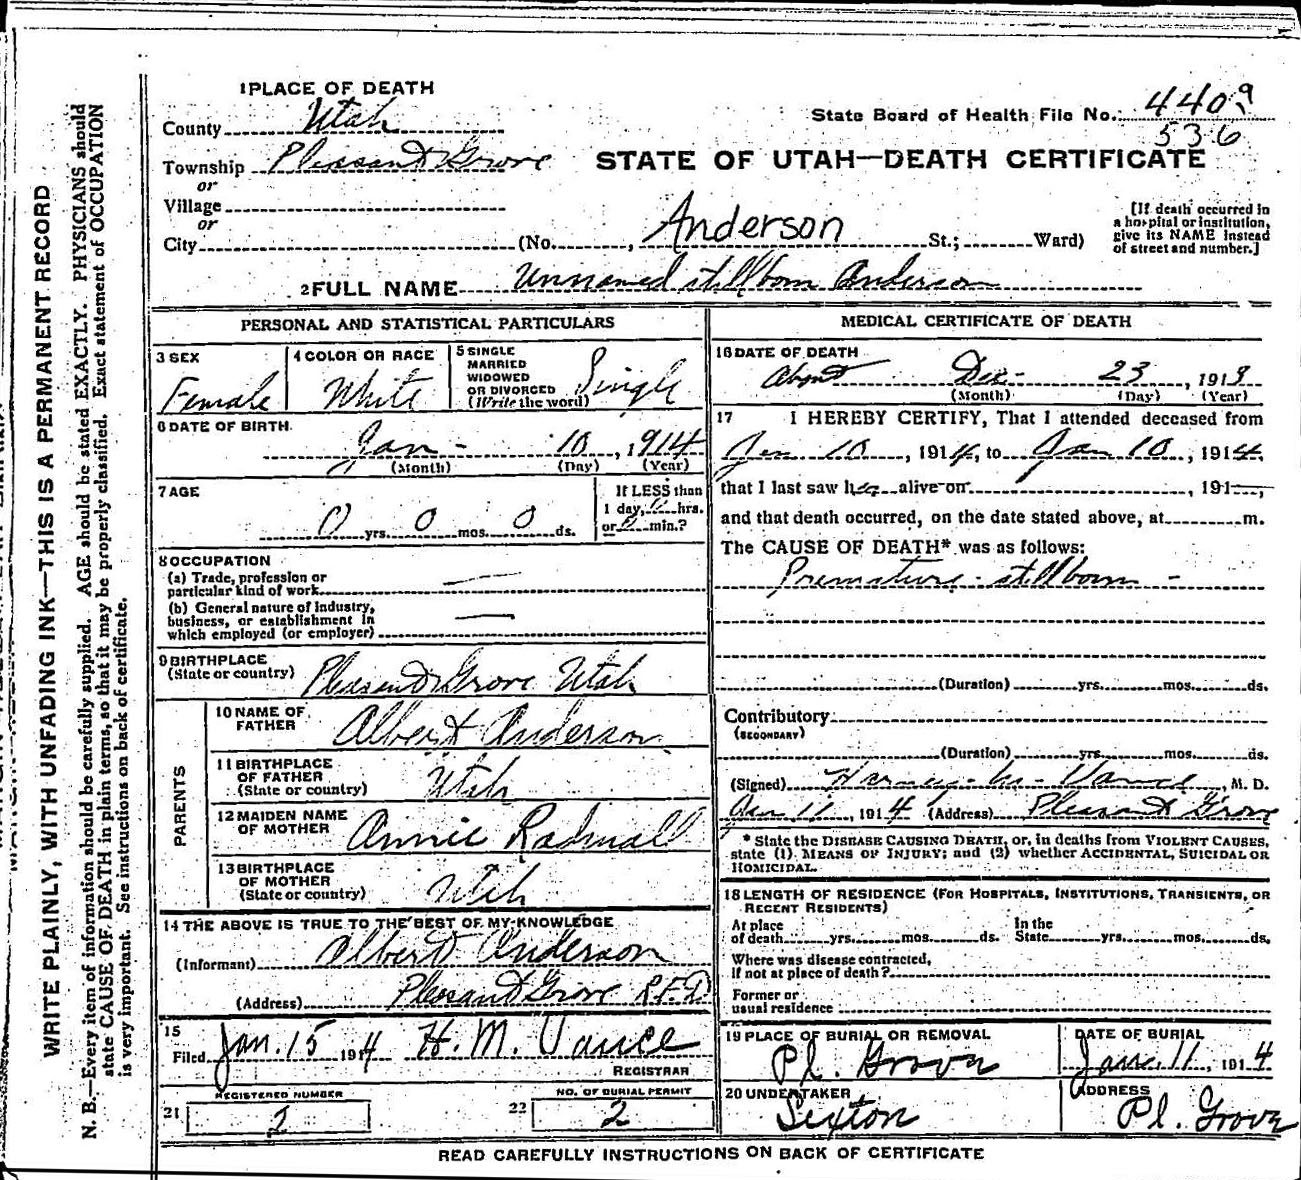 1 PLACE OF DEATH
County Utah
State Board of Health File No. 4409
536
Township Pleasant Grove
STATE OF UTAH—DEATH CERTIFICATE
or
Village
or
City (No. , Anderson St.; Ward)
[If death occurred in a hospital or institution, give its NAME instead of street and number.]
2 FULL NAME Unnamed stillborn Anderson
PERSONAL AND STATISTICAL PARTICULARS
3 SEX
Female
4 COLOR OR RACE
White
5 SINGLE
MARRIED
WIDOWED
OR DIVORCED
(Write the word)
Single
6 DATE OF BIRTH
Jan - 10, 1914
(Month) (Day) (Year)
7 AGE
0 yrs. 0 mos. 0 ds.
If LESS than
1 day, 0 hrs.
or 0 min.?
8 OCCUPATION
(a) Trade, profession or
particular kind of work
(b) General nature of industry,
business, or establishment in
which employed (or employer)
9 BIRTHPLACE
(State or country) Pleasant Grove Utah
PARENTS
10 NAME OF
FATHER Albert Anderson
11 BIRTHPLACE
OF FATHER
(State or country) Utah
12 MAIDEN NAME
OF MOTHER Annie Radmall
13 BIRTHPLACE
OF MOTHER
(State or country) Utah
14 THE ABOVE IS TRUE TO THE BEST OF MY KNOWLEDGE
(Informant) Albert Anderson
(Address) Pleasant Grove R.F.D
15
Filed Jan. 15 1914 H. M. Vance
REGISTRAR
REGISTERED NUMBER
21 2
NO. OF BURIAL PERMIT
22 2
MEDICAL CERTIFICATE OF DEATH
16 DATE OF DEATH
About Dec - 23, 1913
(Month) (Day) (Year)
17 I HEREBY CERTIFY, That I attended deceased from
Jan 10, 1914, to Jan 10, 1914,
that I last saw her alive on , 191 ,
and that death occurred, on the date stated above, at m.
The CAUSE OF DEATH* was as follows:
Premature - stillborn -
(Duration) yrs. mos. ds.
Contributory
(SECONDARY)
(Duration) yrs. mos. ds.
(Signed) M. Vance, M. D.
Jan 11, 1914 (Address) Pleasant Grove
* State the DISEASE CAUSING DEATH, or, in deaths from VIOLENT CAUSES,
state (1) MEANS OF INJURY; and (2) whether ACCIDENTAL, SUICIDAL OR
HOMICIDAL.
18 LENGTH OF RESIDENCE (FOR HOSPITALS, INSTITUTIONS, TRANSIENTS, OR
RECENT RESIDENTS)
At place
of death yrs. mos. ds.
In the
State yrs. mos. ds.
Where was disease contracted,
if not at place of death?
Former or
usual residence
19 PLACE OF BURIAL OR REMOVAL
Pl. Grove
DATE OF BURIAL
Jan. 11, 1914
20 UNDERTAKER
Sexton
ADDRESS
Pl. Grove
READ CAREFULLY INSTRUCTIONS ON BACK OF CERTIFICATE
WRITE PLAINLY, WITH UNFADING INK—THIS IS A PERMANENT RECORD
N. B.—Every item of information should be carefully supplied. AGE should be stated EXACTLY. PHYSICIANS should
state CAUSE OF DEATH in plain terms, so that it may be properly classified. Exact statement of OCCUPATION
is very important. See instructions on back of certificate.